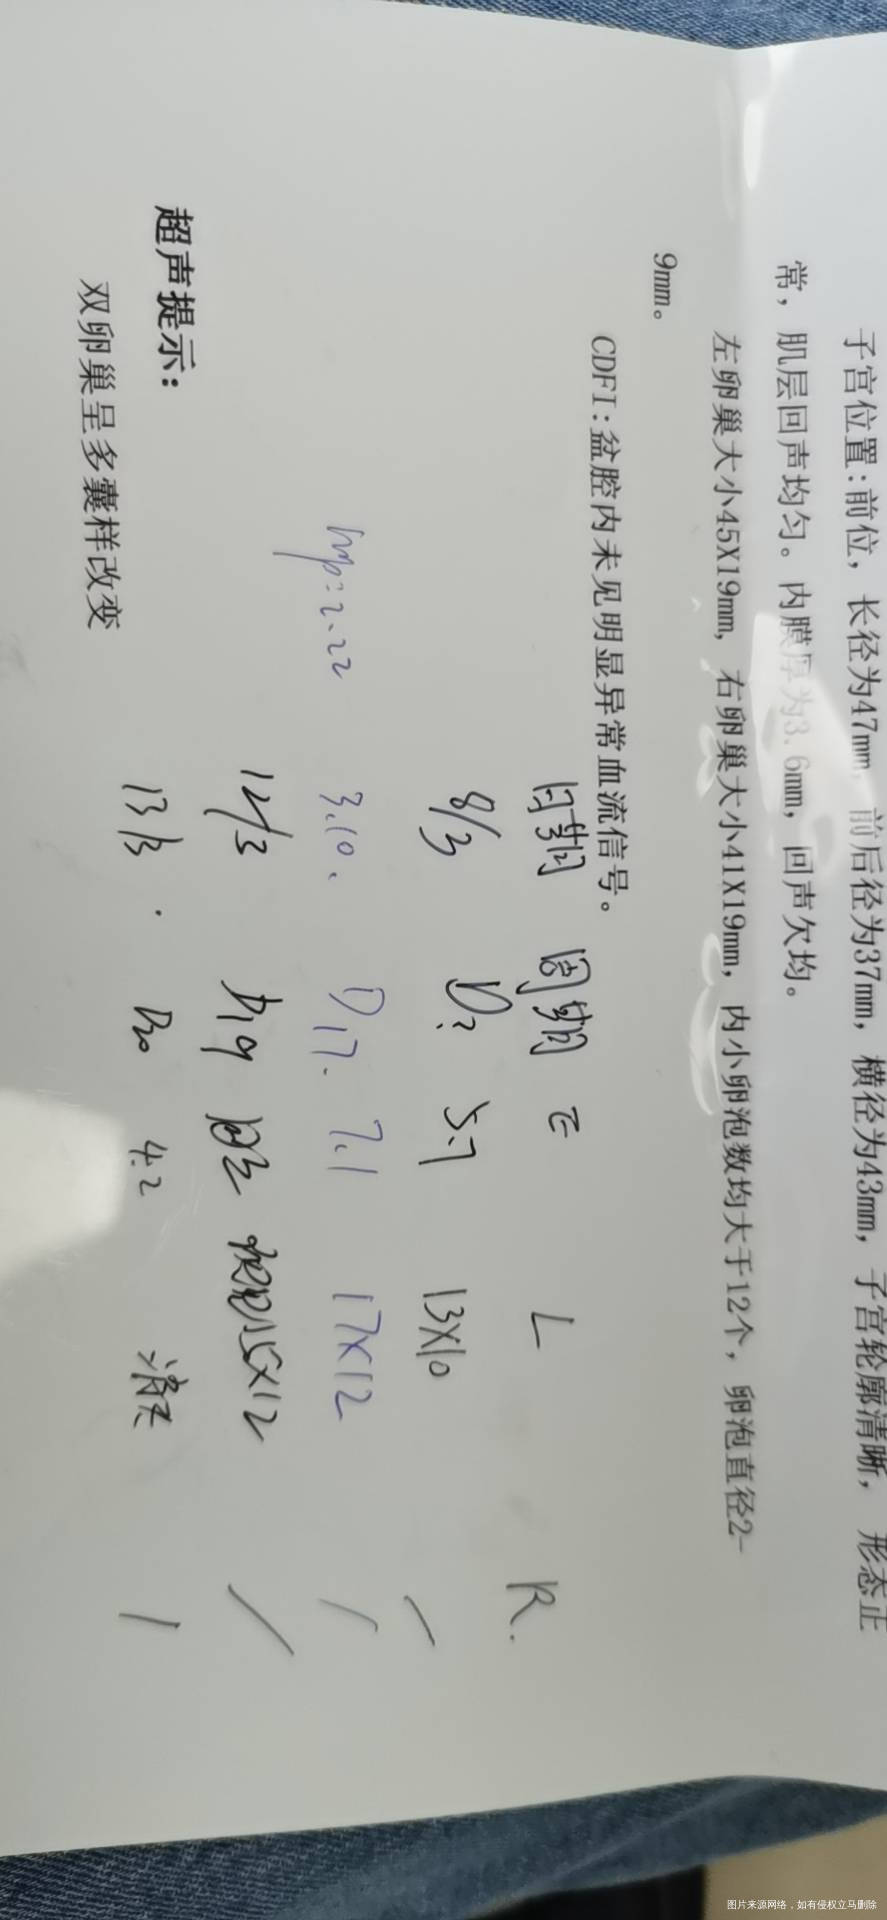 子宫位置:前位，长径为47mm，前后径为37mm，横径为43mm，子宫轮廓清晰，形态正
常，肌层回声均匀。内膜厚为3.6mm，回声欠均。
左卵巢大小45X19mm，右卵巢大小41X19mm，内小卵泡数均大于12个，卵泡直径2-
9mm。
CDFI:盆腔内未见明显异常血流信号。
日期 周期 E L R.
8/3 D? 5.7 13X10 /
lmp:2.22 3.10、 D17. 7.1 17X12 /
12/3 D19 15X12 /
13/3. D20 4.2 消失 /
超声提示:
双卵巢呈多囊样改变
图片来源网络，如有侵权立马删除